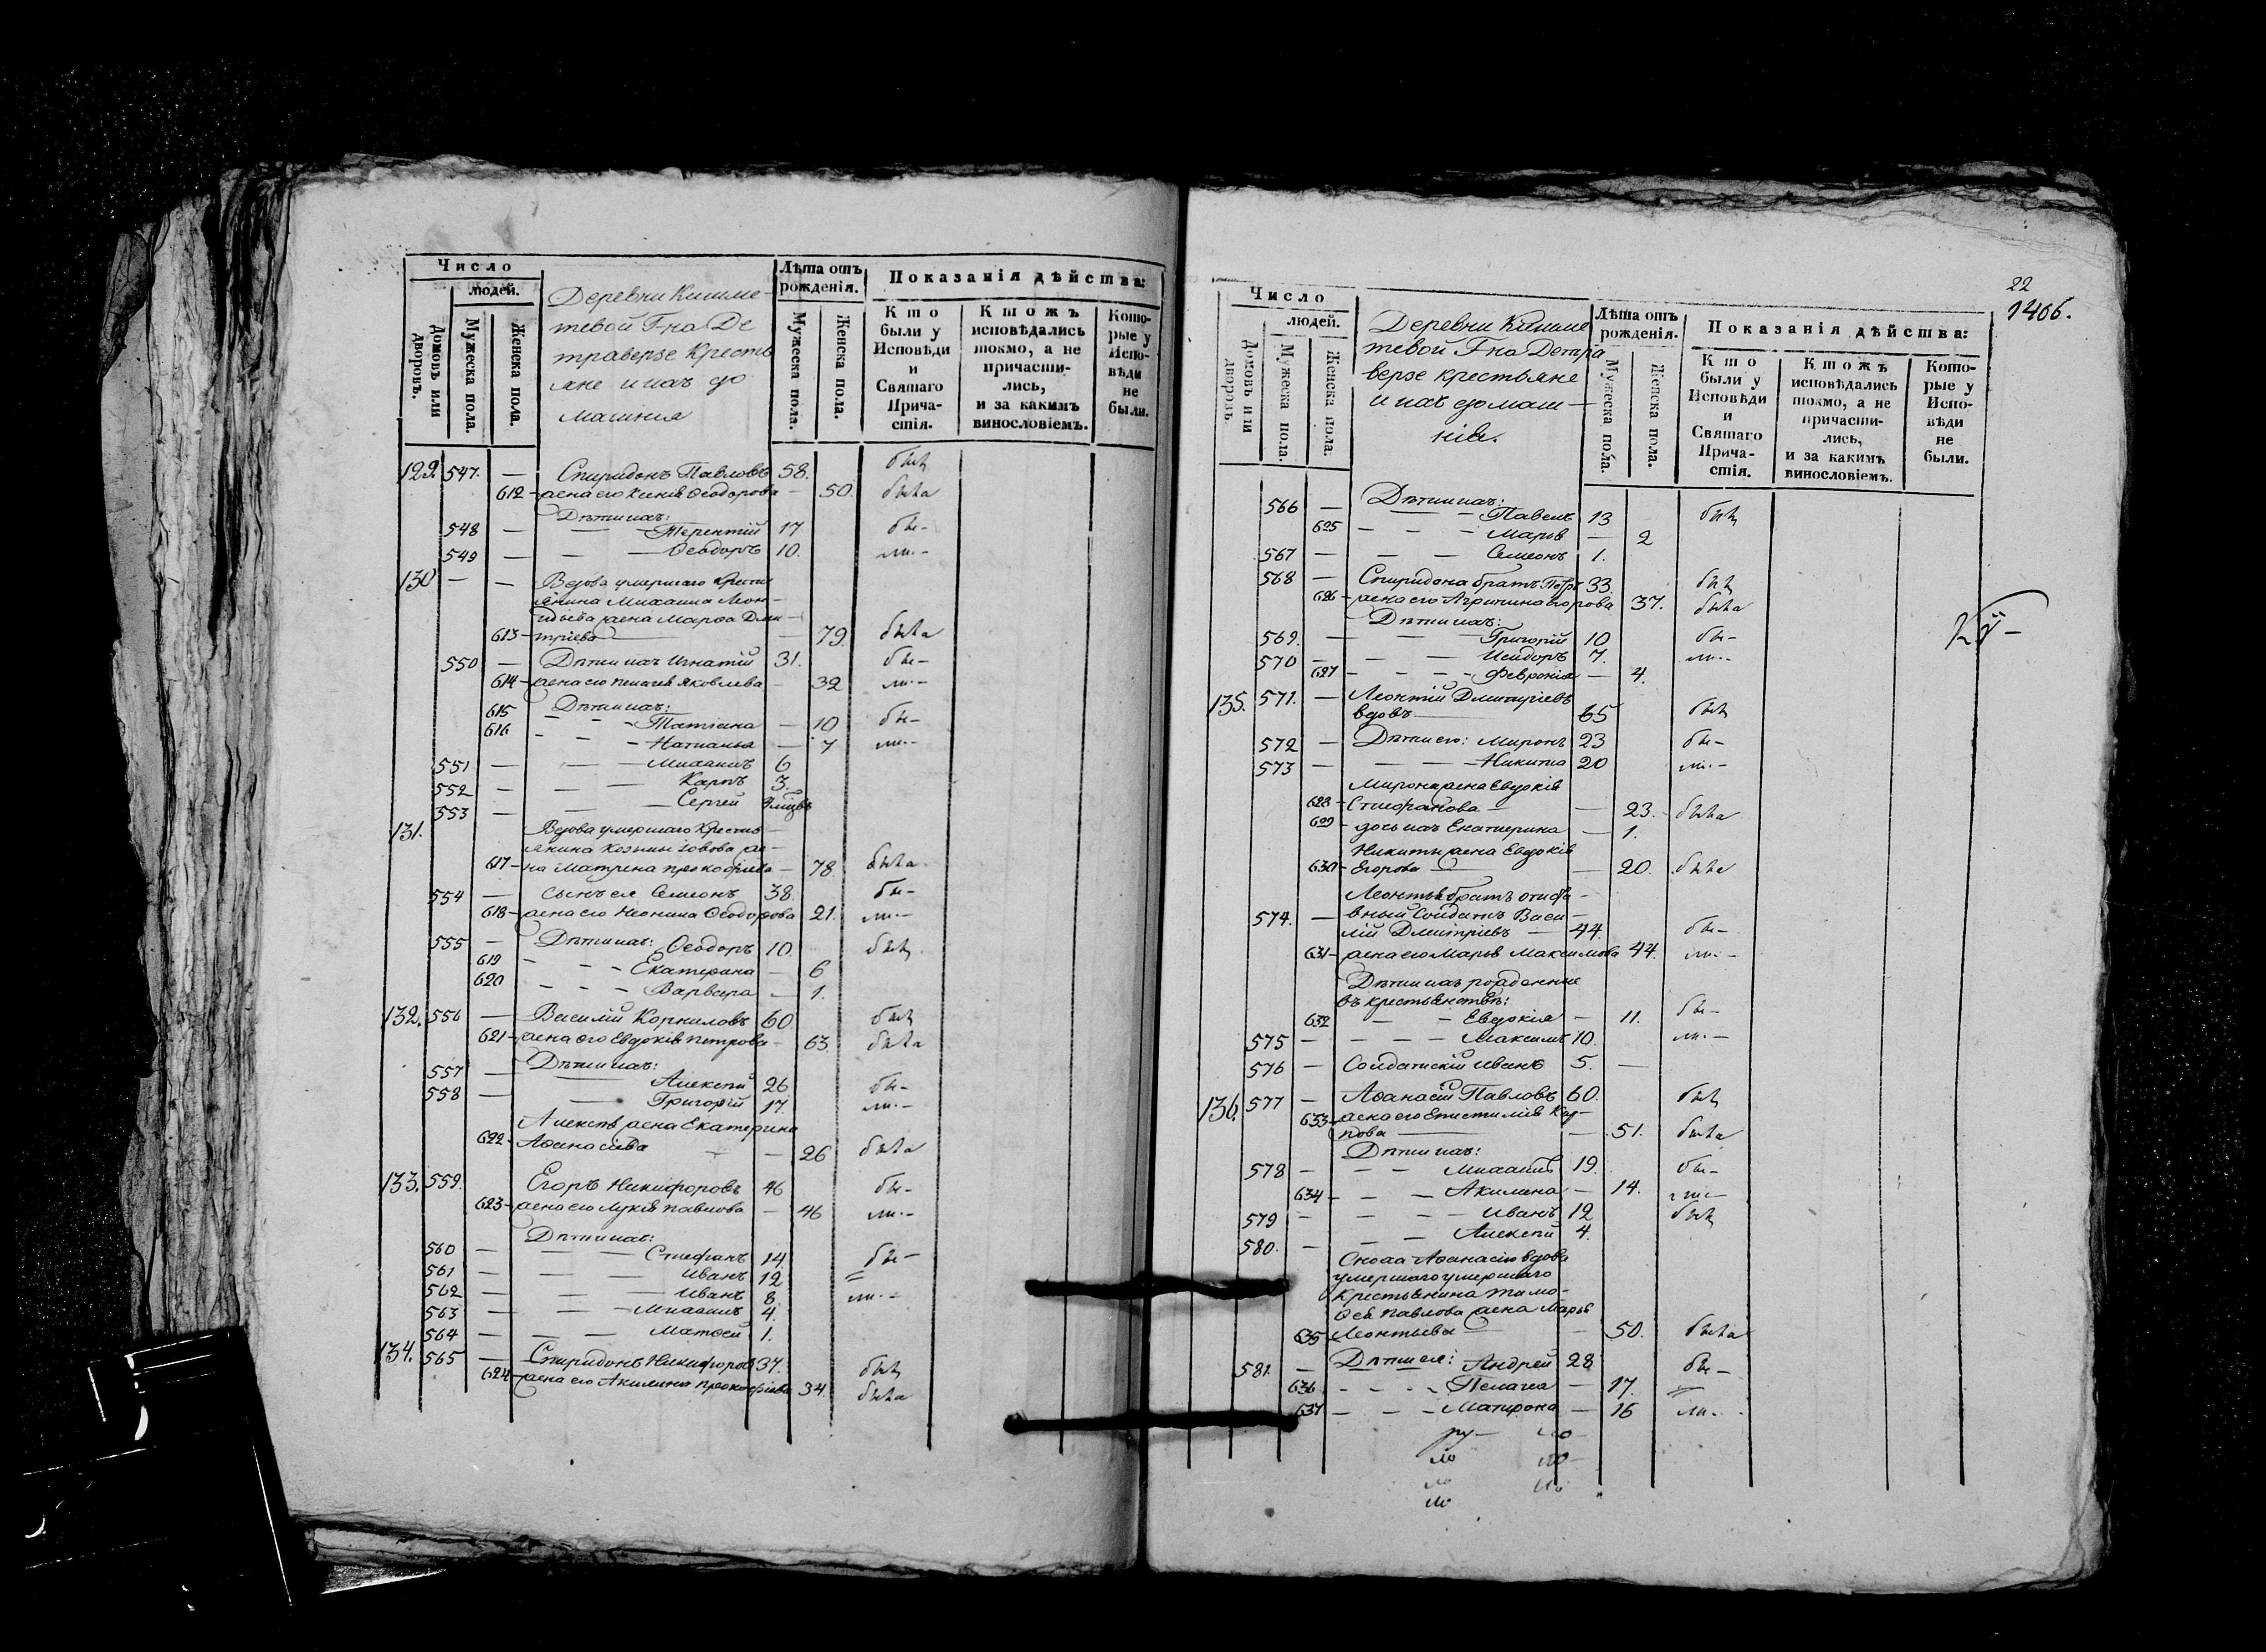 Число
людей.
Домовъ или дворовъ.
Мужеска пола.
Женска пола.
Деревни Кишме-
тевой Г-на Де
траверзе Кресть
яне и ихъ до
машнія
Лѣта отъ рожденія.
Мужеска пола.
Женска пола.
Показанія дѣйства:
Кто были у Исповѣди и Святаго Прича-стія.
Ктожъ исповѣдались токмо, а не причасти-лись, и за какимъ винословіемъ.
Кото-рые у Испо-вѣди не были.
129. 547. — Спиридонъ Павловъ 58. былъ
612 жена его Ксенія Ѳеодорова — 50. была
Дѣти ихъ:
548 — Терентій 17 бы-
549 — Ѳеодоръ 10. ли.-
130 — — Вдова умершаго крестьянина Михаила Леон-
тьева жена Марѳа Дми-
613 тріева — 79. была
550 — Дѣти ихъ Игнатій 31. бы-
614 жена его Пелагея Яковлева — 32 ли.-
Дѣти ихъ:
615 — Татіана — 10 бы-
616 — Наталья — 7 ли.-
551 — Михаилъ 6
552 — Карпъ 3.
553 — Сергей
131. Вдова умершаго кресть-
янина Козьмы жe-
617 на Матрена Прокофіева — 78 была
554 — сынъ ея Семіонъ 38. бы-
618 жена его Неонила Ѳеодорова 21. ли.-
555 — Дѣти ихъ: Ѳеодоръ 10. былъ
619 — Екатерина — 6
620 — Варвара — 1.
132. 556 — Василій Корниловъ 60 былъ
621 жена его Евдокія Петрова — 63. была
Дѣти ихъ:
557 — Алексѣй 26 бы-
558 — Григорій 17. ли.-
Алексѣя жена Екатерина
622 Аѳанасіева — 26 была
133. 559. Егоръ Никифоровъ 46 бы-
623 жена его Лукія Павлова — 46 ли.-
Дѣти ихъ:
560 — Стефанъ 14. бы-
561 — Иванъ 12 =
562 — Иванъ 8. ли.-
563 — Михаилъ 4.
564 — Матѳей 1.
134. 565 — Спиридонъ Никифоровъ 37. былъ
624 жена его Акилина Прокофіева 34. была
22
1406.
Число
людей.
Домовъ или дворовъ.
Мужеска пола.
Женска пола.
Деревни Кишме
тевой Г-на Детра
верзе крестьяне
и ихъ домаш-
нія.
Лѣта отъ рожденія.
Мужеска пола.
Женска пола.
Показанія дѣйства:
Кто были у Исповѣди и Святаго Прича-стія.
Ктожъ исповѣдались токмо, а не причасти-лись, и за какимъ винословіемъ.
Кото-рые у Испо-вѣди не были.
Дѣти ихъ:
566 — Павелъ 13 былъ
625 — Марья — 2
567 — Семеонъ 1.
568 — Спиридона братъ Петръ 33. былъ
626 жена его Агрипина Егорова 37. была
Дѣти ихъ:
569. — Григорій 10 бы-
570 — Исидоръ 7. ли.-
627 — Февронія — 4.
135. 571. — Леонтій Дмитріевъ
вдовъ 65 былъ
572 — Дѣти его: Миронъ 23 бы-
573 — Никита 20 ли.-
Мирона жена Евдокія
628 Стефанова — 23. была
629 дочь ихъ Екатерина — 1.
Никиты жена Евдокія
630 Егорова — 20. была
Леонтья братъ отста-
574. — вный Солдатъ Васи-
лій Дмитріевъ — 44. бы-
631 жена его Марья Максимова 44. ли.-
Дѣти ихъ рожденные
въ крестьянствѣ:
632 — Евдокія — 11. бы-
575 — Максимъ 10. ли.-
576 — Солдатскій Иванъ 5. —
136. 577 — Аѳанасій Павловъ 60. былъ
633 жена его Епистимія Кар-
пова — 51. была
Дѣти ихъ:
578 — Михаилъ 19. бы-
634 — Акилина — 14. ли-
579 — Иванъ 12 былъ
580. — Алексѣй 4.
Сноха Аѳанасія вдова
умершаго умершаго
крестьянина Тимо-
ѳея Павлова жена Марья
635 Леонтьева — 50. была
581. — Дѣти ея: Андрей 28. бы-
636 — Пелагея — 17. =
637 — Матрона — 16 ли.-